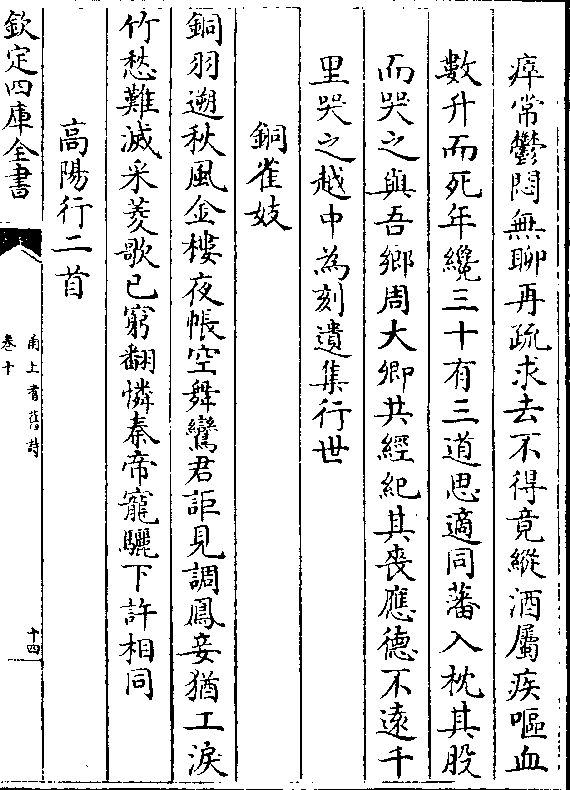 瘁常鬱悶無聊再疏求去不得竟縱酒屬疾嘔血
數升而死年纔三十有三道思適同藩入枕其股
而哭之與吾鄉周大卿共經紀其喪應德不遠千
里哭之越中為刻遺集行世
銅雀妓
銅羽遡秋風金樓夜帳空舞鸞君詎見調鳳妾猶工淚
竹愁難滅采菱歌已窮翻憐秦帝寵驪下許相同
高陽行二首
欽定四庫全書
甬上耆舊詩
卷十
十四